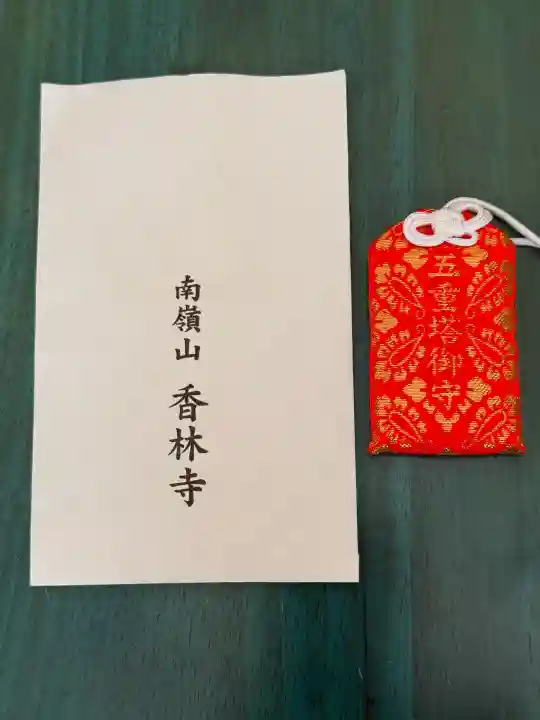 南嶺山 香林寺
五重塔御守